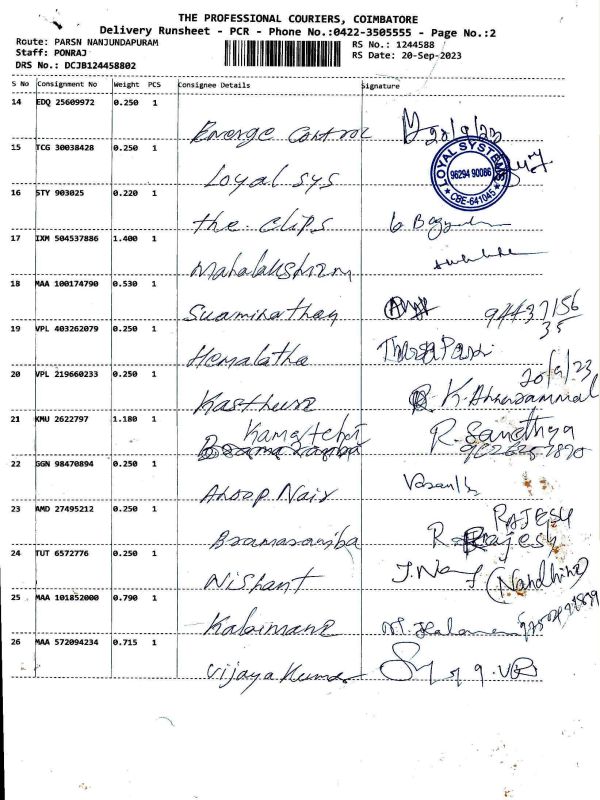 THE PROFESSIONAL COURIERS, COIMBATORE
Delivery Runsheet - PCR - Phone No.:0422-3505555 - Page No.:2
Route: PARSN NANJUNDAPURAM
RS No.: 1244588
Staff: PONRAJ
RS Date: 20-Sep-2023
DRS No.: DCJB124458802
S No Consignment No Weight PCS Consignee Details Signature
14 EDQ 25609972 0.250 1
Energe Control 20/9/23
15 TCG 30038428 0.250 1
Loyal sys
LOYAL SYSTEMS
96294 90086
CBE-641045
16 STY 903025 0.220 1
the. clips
17 IXM 504537886 1.400 1
Mahalakshmi
18 MAA 100174790 0.530 1
Swaminathan 94437156
35
19 VPL 403262079 0.250 1
Hemalatha
20 VPL 219660233 0.250 1
20/9/23
Kasthuri
21 KMU 2622797 1.180 1
Kamatchi R. Sandhya
22 GGN 98470894 0.250 1
Anoop Nair
23 AMD 27495212 0.250 1
RAJESH
Rajesh
24 TUT 6572776 0.250 1
Nishant (Nandhini)
25 MAA 101852000 0.790 1
Kabimani
26 MAA 572094234 0.715 1
Vijaya Kumar